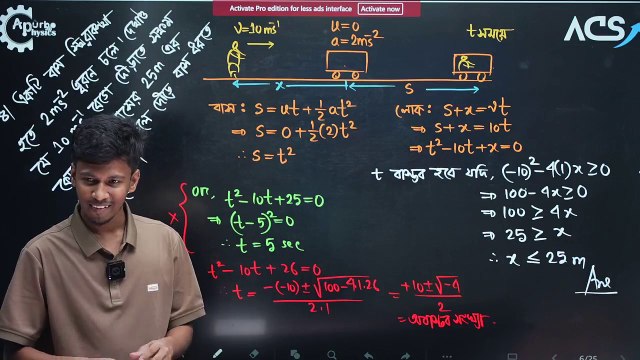 Activate Pro edition for less ads interface | Activate now
Apurbo
Physics
ACS
v=10ms⁻¹
u=0
a=2ms⁻²
t সময়ে
x
S
বাস: S=ut+½at²
⇒ S=0+½(2)t²
∴ S=t²
লোক: S+x=vt
⇒ S+x=10t
⇒ t²-10t+x=0
t বাস্তব হবে যদি, (-10)²-4(1)x≥0
⇒ 100-4x≥0
⇒ 100≥4x
⇒ 25≥x
∴ x≤25m
Ans
x
or, t²-10t+25=0
⇒ (t-5)²=0
∴ t=5 sec
t²-10t+26=0
∴ t= (-(-10)±√(100-4.1.26))/(2.1) = (+10±√-4)/2
= অবাস্তব সংখ্যা.
6/25